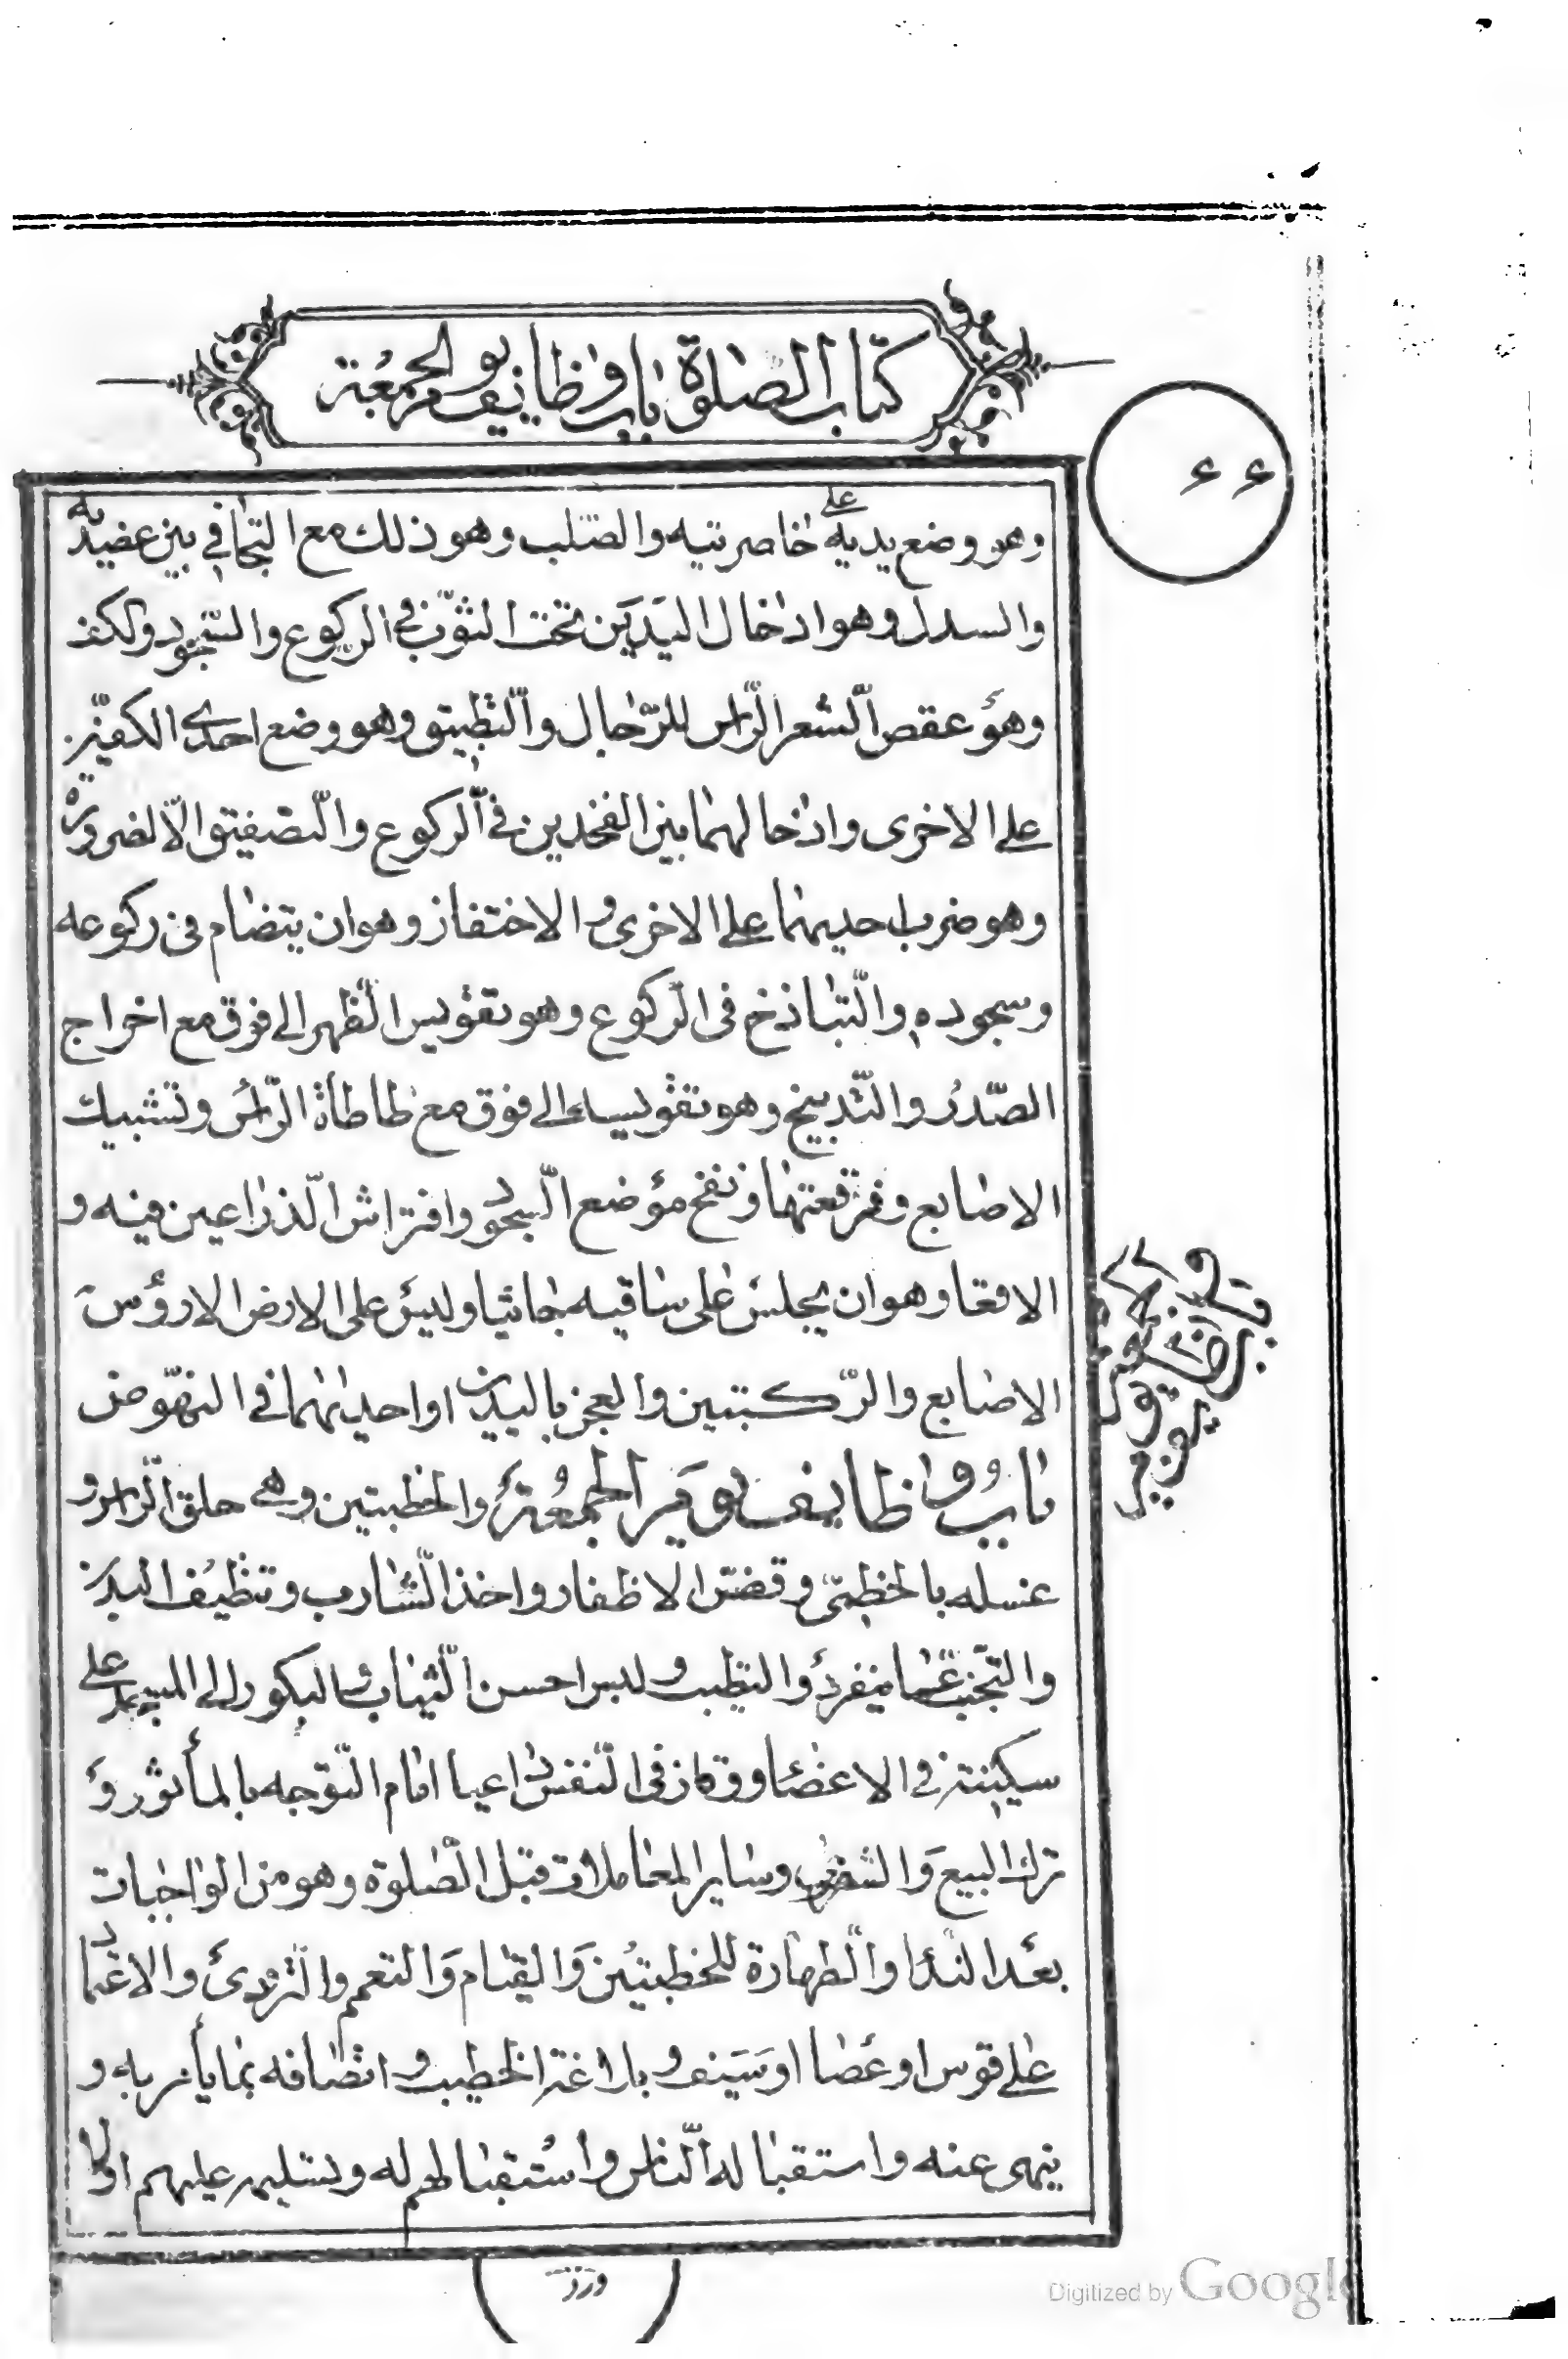 كتاب الصلوة باب وظايف يوم الجمعة
٤٤
وهو وضع يديه على خاصرتيه والصلب وهو ذلك مع التجافي بين عضديه
والسدل وهو ادخال اليدين تحت الثوب في الركوع والسجود والكف
وهو عقص الشعر الراس للرجال والتطبيق وهو وضع احدى الكفين
على الاخرى وادخالهما بين الفخذين في الركوع والتصفيق الا لضرورة
وهو ضرب احديهما على الاخرى و الاحتفاز وهو ان يتضام فى ركوعه
وسجوده والتباذخ فى الركوع وهو تقويس الظهر الى فوق مع اخراج
الصدر والتدبيخ وهو تقويسه الى فوق مع طاطأة الراس وتشبيك
الاصابع وفرقعتها ونفخ موضع السجود وافتراش الذراعين فيه و
الاقعا وهو ان يجلس على ساقيه جاثيا وليس على الارض الا رؤس
الاصابع والركبتين والعجز باليدين او احديهما في النهوض
باب وظايف يوم الجمعة والخطبتين وهى حلق الراس و
غسله بالخطمى وقص الاظفار واخذ الشارب وتنظيف البدن
والتجنب عما ينفر والتطيب ولبس احسن الثياب والبكور الى المسجد على
سكينة في الاعضا ووقار فى النفس داعيا امام التوجه بالمأثور و
ترك البيع و وساير المعاملات قبل الصلوة وهو من الواجبات
بعد الندا والطهارة للخطبتين والقيام والتعمم والتردى والاعتماد
على قوس او عصا او سيف و بلاغة الخطيب و اتصافه بما يأمر به و
ينهى عنه واستقباله الناس واستقبالهم له وتسليمه عليهم اولا
وظايف يوم الجمعة
Digitized by Google